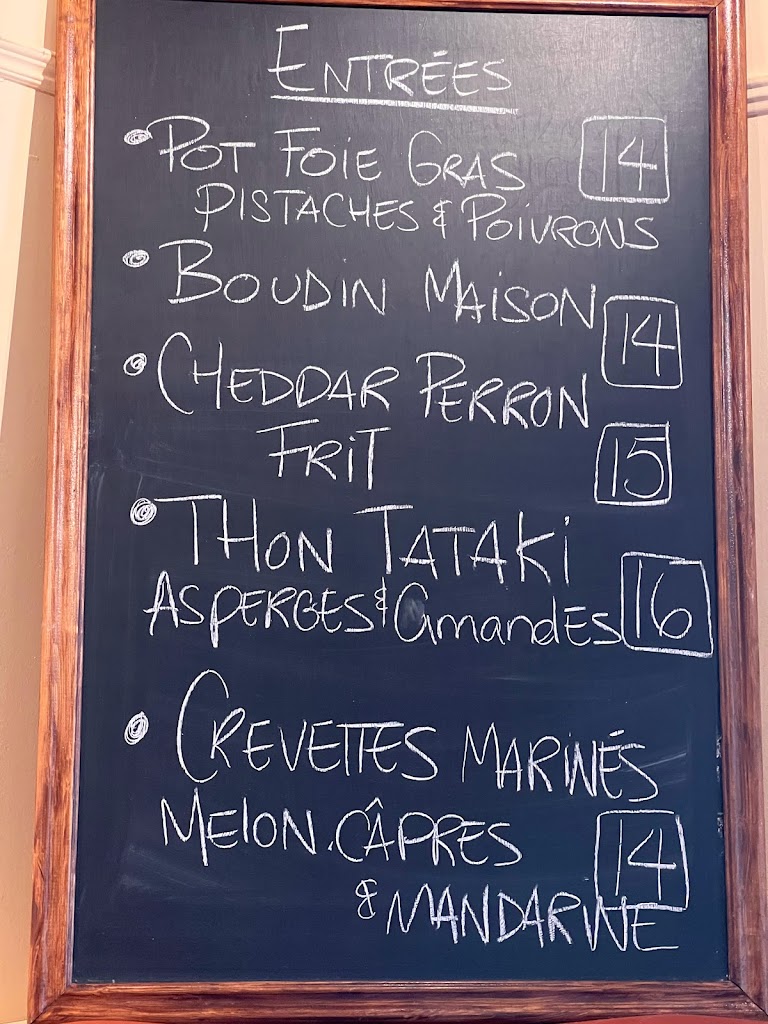 ENTRÉES
• POT FOIE GRAS 14
PISTACHES & POIVRONS
• BOUDIN MAISON 14
• CHEDDAR PERRON
FRIT 15
• THON TATAKI
ASPERGES & amandES 16
• CREVETTES MARINÉS
MELON. CÂPRES 14
& MANDARINE